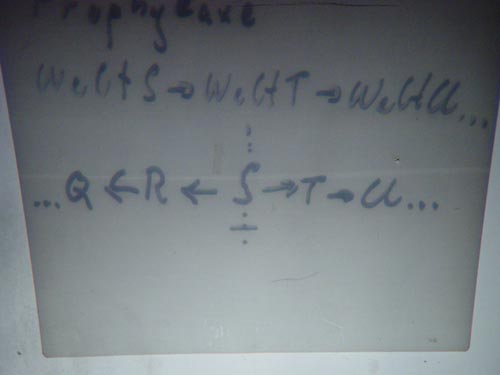 Prophylaxe
Welt S → Welt T → Welt U...
⋮
...Q ← R ← S → T → U...
÷